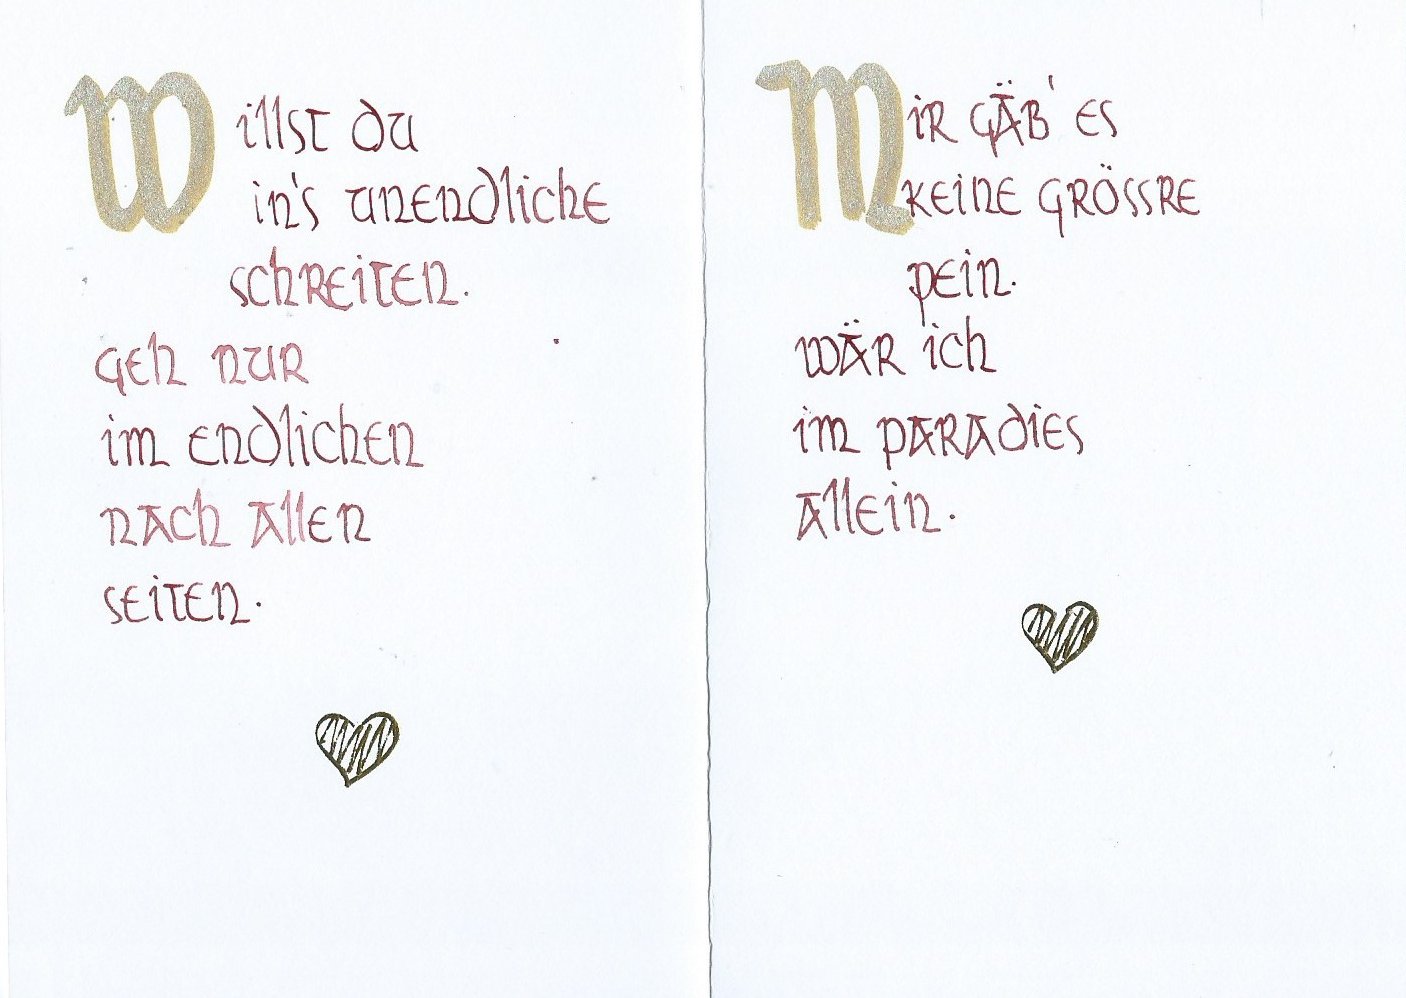 Willst du
in's unendliche
schreiten.
Geh nur
im endlichen
nach allen
seiten.
Mir gäb' es
keine grössre
pein.
wär ich
im paradies
allein.